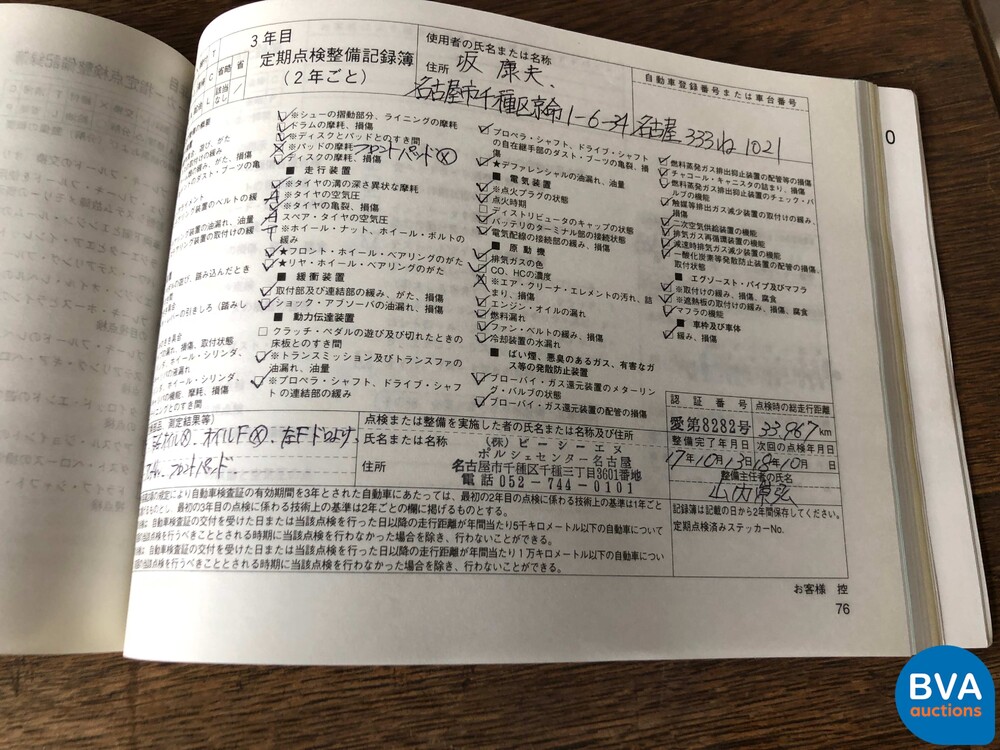 3年目
定期点検整備記録簿
(2年ごと)
使用者の氏名または名称
坂 康夫
住所
名古屋市千種区京命1-6-34
自動車登録番号または車台番号
名古屋 333 ね 1021
※シューの摺動部分、ライニングの摩耗
ドラムの摩耗、損傷
※ディスクとパッドとのすき間
※パッドの摩耗 フロントパッド
ディスクの摩耗、損傷
■ 走行装置
※タイヤの溝の深さ異状な摩耗
※タイヤの空気圧
※タイヤの亀裂、損傷
スペア・タイヤの空気圧
※ホイール・ナット、ホイール・ボルトの
緩み
★フロント・ホイール・ベアリングのがた
★リヤ・ホイール・ベアリングのがた
■ 緩衝装置
取付部及び連結部の緩み、がた、損傷
ショック・アブソーバの油漏れ、損傷
■ 動力伝達装置
□ クラッチ・ペダルの遊び及び切れたときの
床板とのすき間
※トランスミッション及びトランスファの
油漏れ、油量
※プロペラ・シャフト、ドライブ・シャフ
トの連結部の緩み
プロペラ・シャフト、ドライブ・シャフト
の自在継手部のダスト・ブーツの亀裂、損
傷
★デファレンシャルの油漏れ、油量
■ 電気装置
※点火プラグの状態
点火時期
□ ディストリビュータのキャップの状態
バッテリのターミナル部の接続状態
電気配線の接続部の緩み、損傷
■ 原動機
排気ガスの色
CO、HCの濃度
※エア・クリーナ・エレメントの汚れ、詰
まり、損傷
エンジン・オイルの漏れ
燃料漏れ
ファン・ベルトの緩み、損傷
冷却装置の水漏れ
■ ばい煙、悪臭のあるガス、有害なガ
ス等の発散防止装置
ブローバイ・ガス還元装置のメターリン
グ・バルブの状態
ブローバイ・ガス還元装置の配管の損傷
燃料蒸発ガス排出抑止装置の配管等の損傷
チャコール・キャニスタの詰まり、損傷
燃料蒸発ガス排出抑止装置のチェック・バ
ルブの機能
触媒等排出ガス減少装置の取付けの緩み、
損傷
二次空気供給装置の機能
排気ガス再循環装置の機能
減速時排気ガス減少装置の機能
一酸化炭素等発散防止装置の配管の損傷、
取付状態
■ エグゾースト・パイプ及びマフラ
※取付けの緩み、損傷、腐食
※遮熱板の取付けの緩み、損傷、腐食
マフラの機能
■ 車枠及び車体
緩み、損傷
点検または整備を実施した者の氏名または名称及び住所
氏名または名称
(株) ピーシーエヌ
ポルシェセンター名古屋
住所
名古屋市千種区千種三丁目3601番地
電話 052-744-0101
認証番号
愛第8282号
点検時の総走行距離
33,967 km
整備完了年月日
17年10月13日
次回の点検年月日
18年10月 日
整備主任者の氏名
記録簿は記載の日から2年間保存してください。
定期点検済みステッカーNo.
の規定により自動車検査証の有効期間を3年とされた自動車にあたっては、最初の2年目の点検に係わる技術上の基準は1年ごと
するものとし、最初の3年目の点検に係わる技術上の基準は2年ごとの欄に掲げるものとする。
は、自動車検査証の交付を受けた日または当該点検を行った日以降の走行距離が年間当り5千キロメートル以下の自動車について
の当該点検を行うべきこととされる時期に当該点検を行わなかった場合を除き、行わないことができる。
は、自動車検査証の交付を受けた日または当該点検を行った日以降の走行距離が年間当り1万キロメートル以下の自動車につい
の当該点検を行うべきこととされる時期に当該点検を行わなかった場合を除き、行わないことができる。
お客様 控
76
BVA
auctions